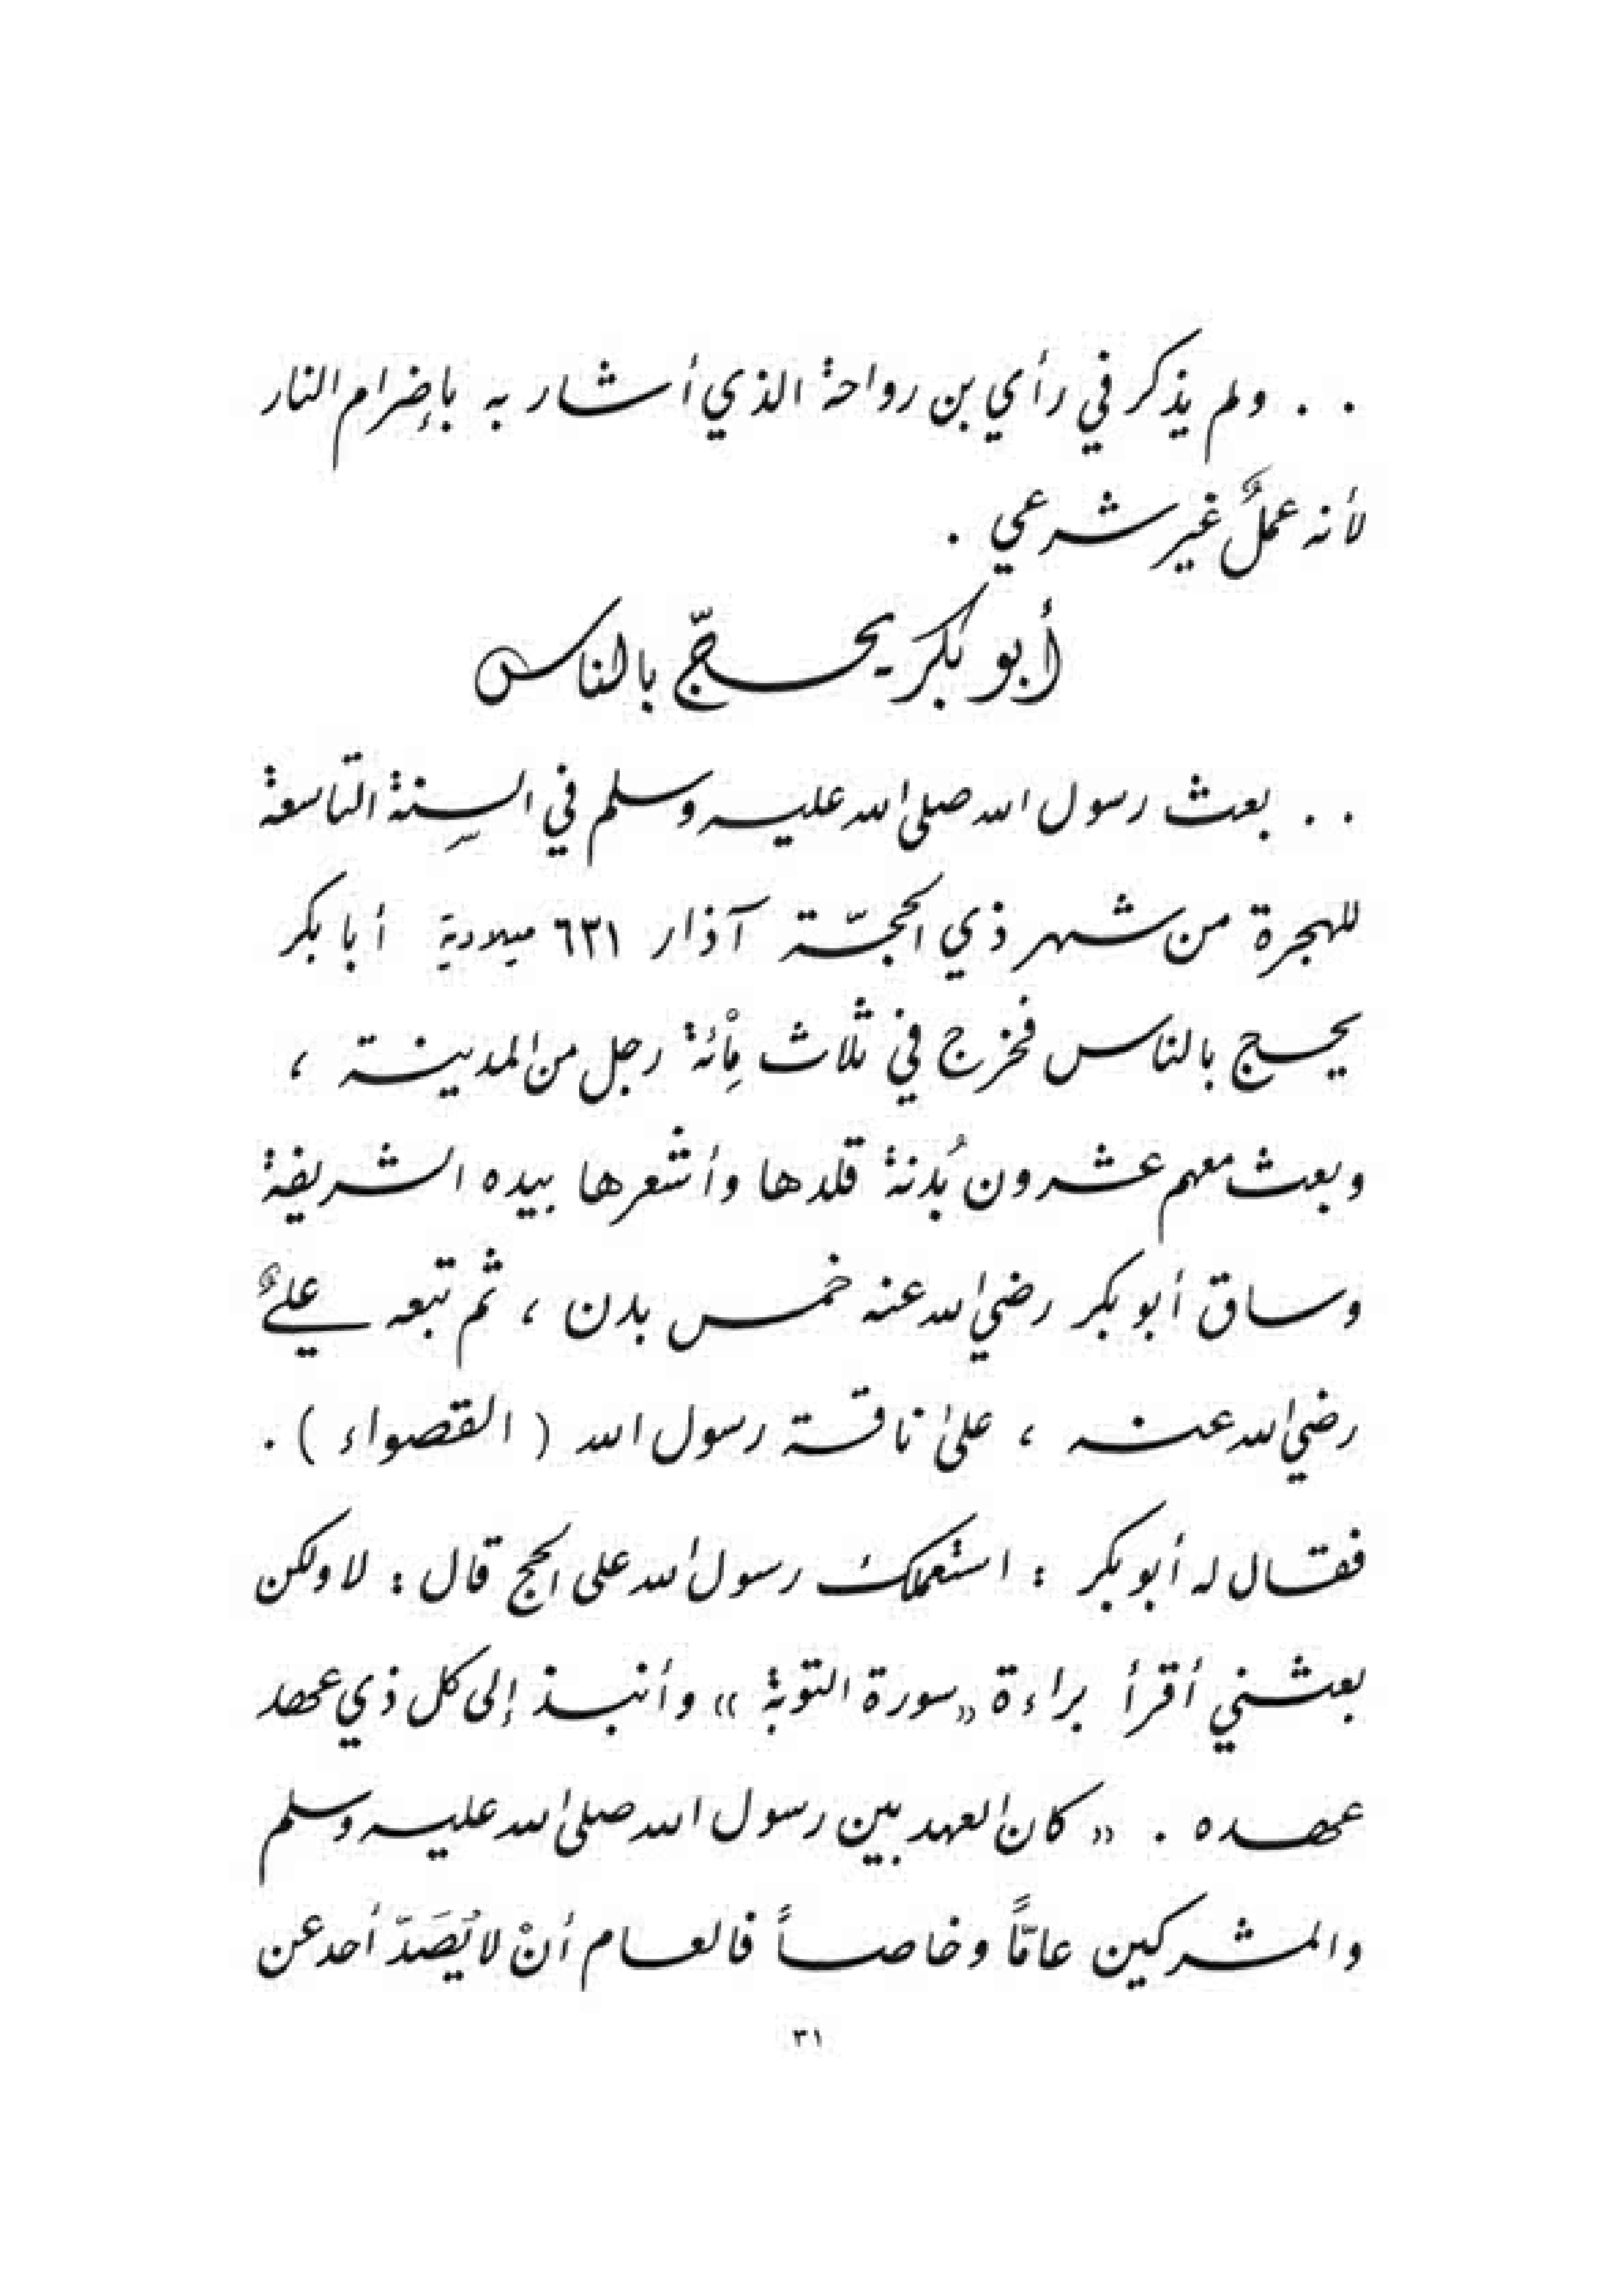 . . ولم يذكر في رأي بن رواحة الذي أشار به بإضرام النار
لأنه عملٌ غير شرعي .
أبو بكر يحجّ بالناس
. . بعث رسول الله صلى الله عليه وسلم في السِنة التّاسعة
للهجرة من شهر ذي الحجّة آذار ٦٣١ ميلادية أبا بكر
يحج بالناس فخرج في ثلاث مِأْئة رجل من المدينة ،
وبعث معهم عشرون بُدنة قلدها وأشعرها بيده الشريفة
وساق أبو بكر رضي الله عنه خمس بدن ، ثم تبعه عليٌ
رضي الله عنه ، على ناقة رسول الله ( القصواء ) .
فقال له أبو بكر : استعملك رسول الله على الحج قال : لا ولكن
بعثني أقرأ براءة «سورة التوبة » وأنبذ إلى كل ذي عهد
عهده . « كان العهد بين رسول الله صلى الله عليه وسلم
والمشركين عامّاً وخاصاً فالعام أنْ لا يُصَدّ أحد عن
٣١